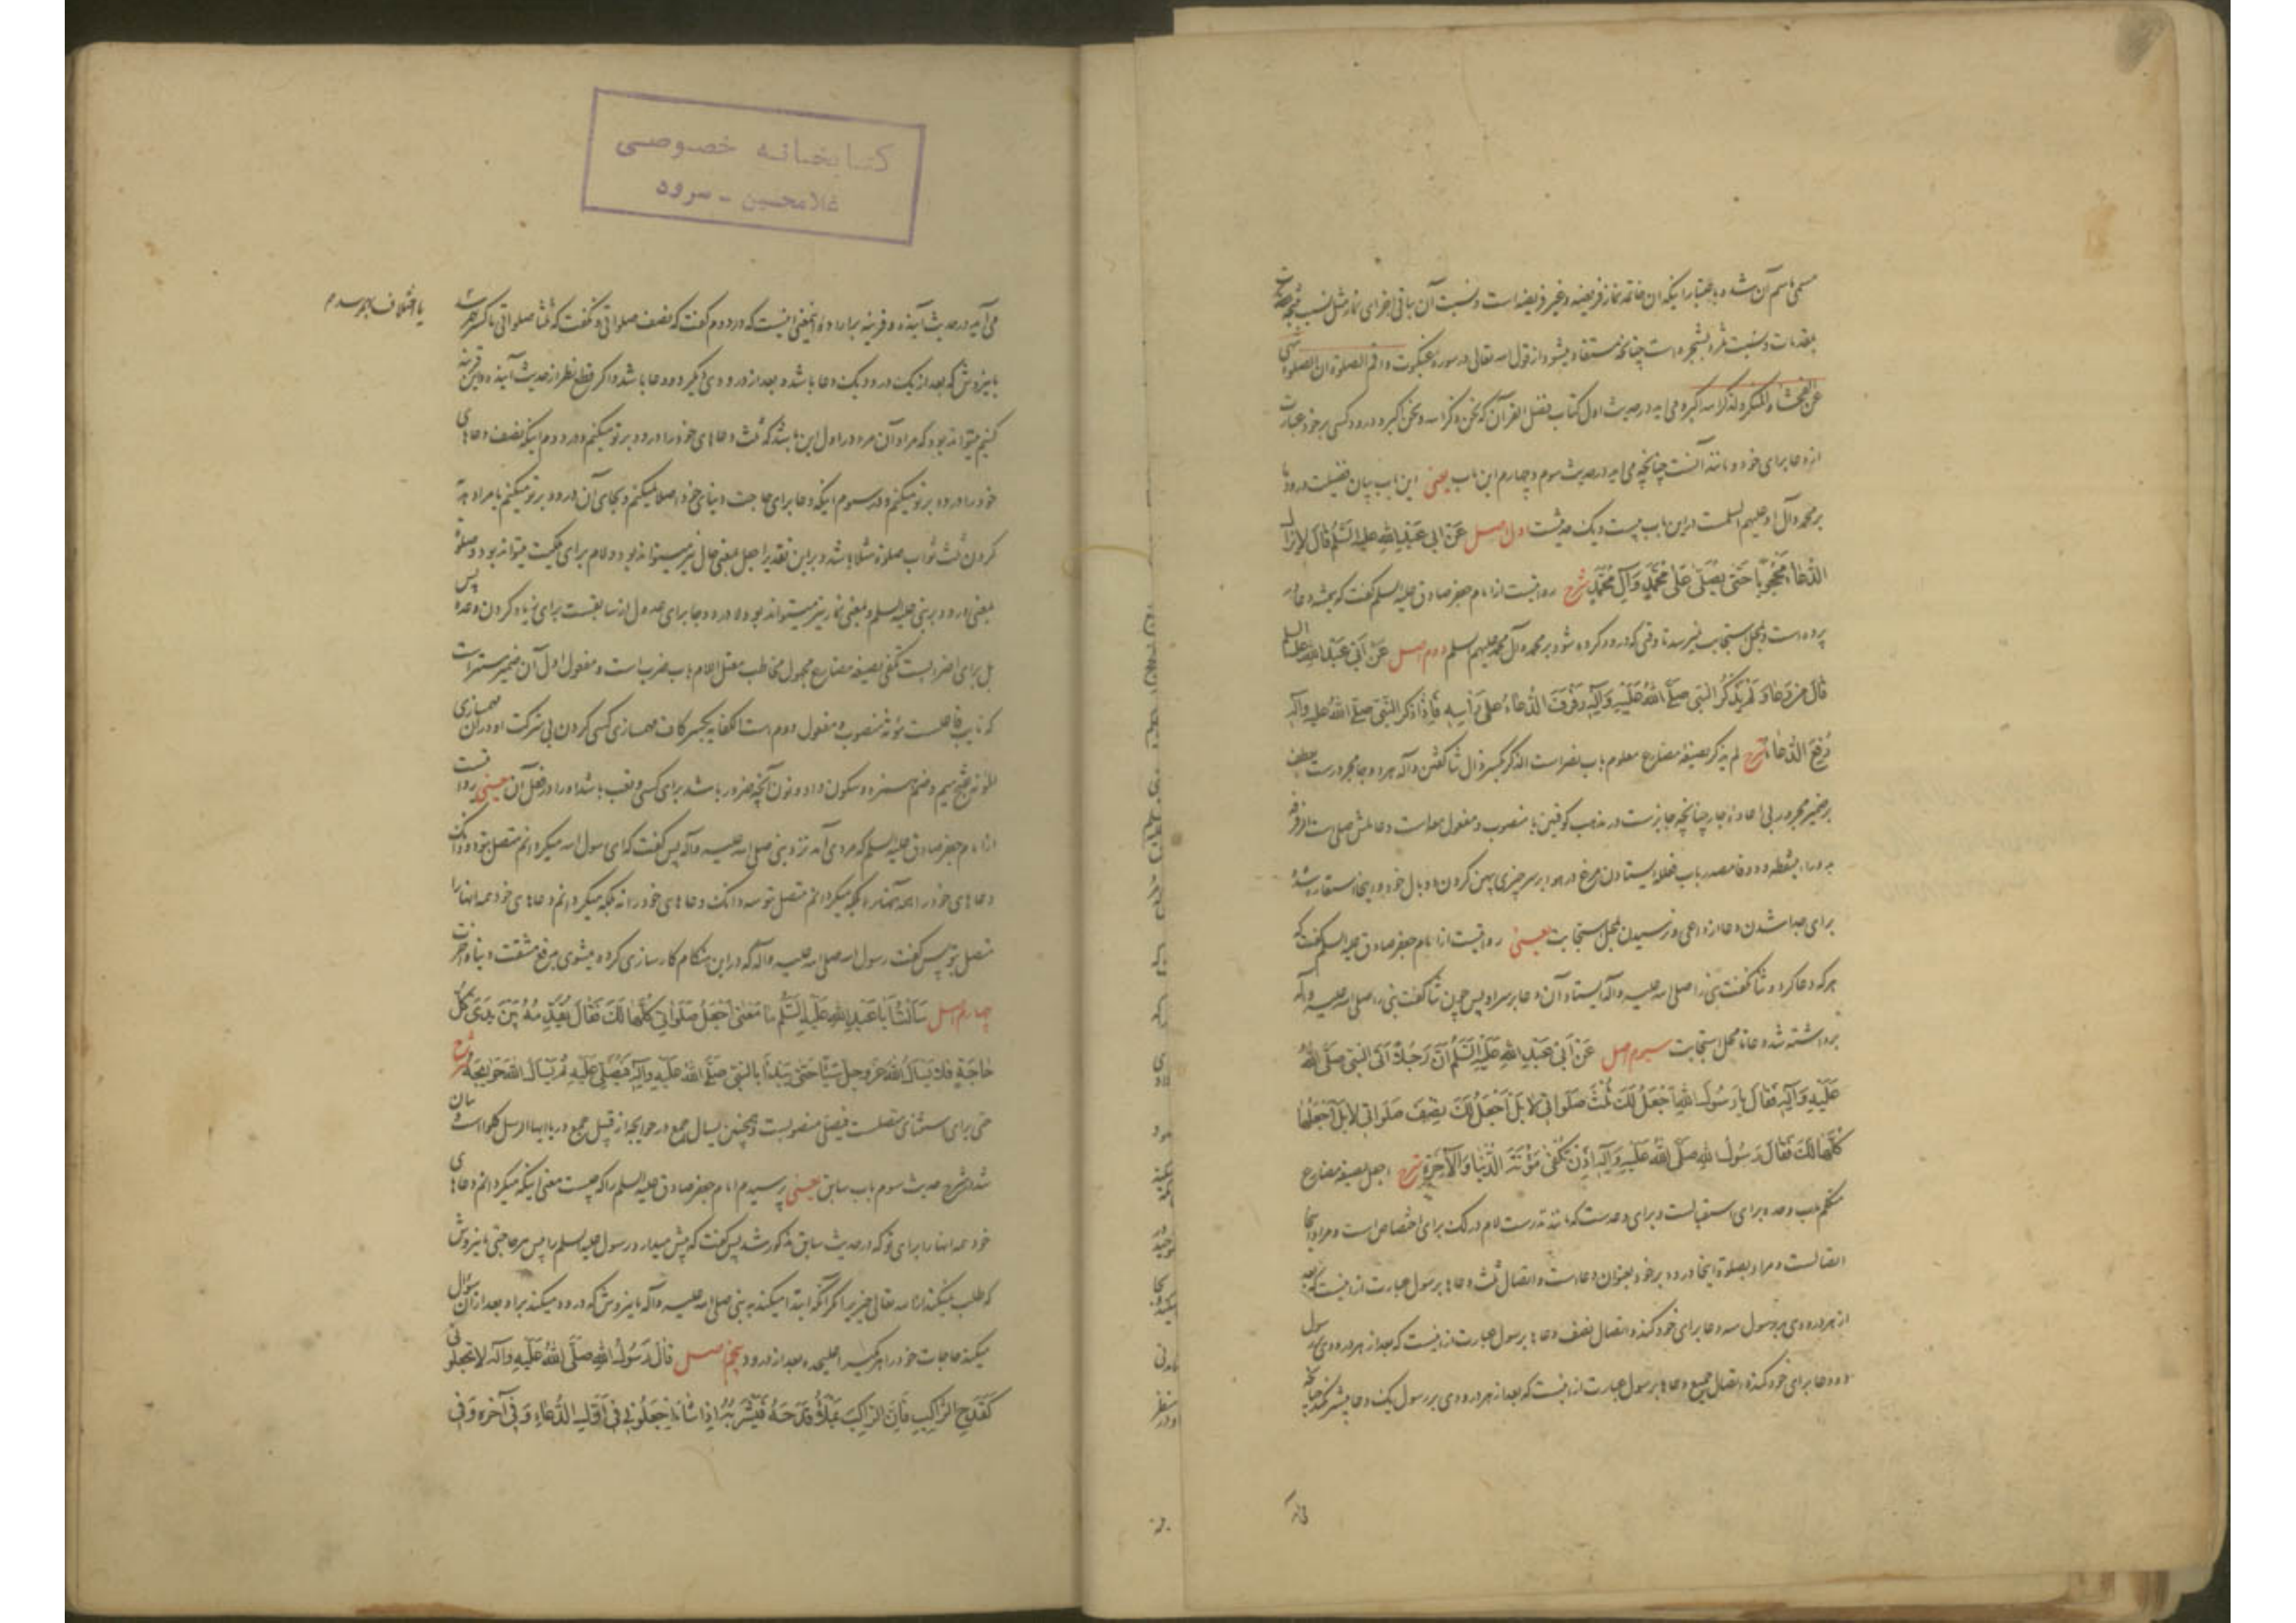 مسمی باسم آن شده باعتبار اینکه ان خاتمه نماز فریضه و غیر فریضه است و نسبت آن بباقی اجزای نماز مثل نسبت نتیجه است
بمقدمات و نسبت ثمره بشجره است چنانچه مستفاد میشود از قول الله تعالی در سوره عنکبوت و اقم الصلوة ان الصلوة تنهی
عن الفحشاء و المنکر و لذکر الله اکبر و می اید در حدیث اول کتاب فضل القرآن که نحن ذکر الله و نحن اکبر و درود کسی بر خود عبارت
از دعا برای خود و مانند آنست چنانچه می اید در حدیث سوم و چهارم این باب یعنی این باب بیان فضیلت درود
بر محمد و آل او علیهم السلمست در این باب بیست و یک حدیثست اول اصل عَنْ ابی عَبْدِ اللهِ علیه السَّلم قالَ لا یزال
الدّعاءُ مَحْجُوباً حَتّی یُصَلّیٰ عَلی مُحَمَّدٍ وَآلِ مُحَمَّدٍ شرح روایتست از امام جعفر صادق علیه السلم گفت که همیشه دعا در
پرده است و بمحل استجابت نمیرسد تا وقتی که درود کرده شود بر محمد و آل محمد علیهم السلم دوم اصل عَنْ اَبی عَبْدِ اللهِ علیه السلم
قالَ مَنْ دَعا وَ لَمْ یَذْکُرِ النَّبی صلّی اللهُ عَلَیْهِ وَآلِهِ رَفْرَفَ الدُّعاءُ عَلی رَأسِهِ فَاِذا ذَکَرَ النَّبیَّ صلّی اللهُ علیه وآله
رُفِعَ الدُّعاءُ شرح لم یذکر بصیغه مضارع معلوم باب نصر است الذکر بکسر ذال ثنا گفتن و آله هر دو جا مجرور است بعطف
بر ضمیر مجرور بی اعاده جار چنانچه جایز است در مذهب کوفیین یا منصوب و مفعول معه است و عاملش صلی است الرفرفه
به دو راء بینقطه و دو فا مصدر باب فعلله ایستادن مرغ در هوا بر سر چیزی بپهن کردن دو بال خود و اینجا استعاره شده
برای جدا شدن دعا از داعی و نرسیدن بمحل استجابت یعنی روایتست از امام جعفر صادق علیه السلم گفت که
هر که دعا کرد و ثنا نگفت نبی را صلی الله علیه و آله ایستاد آن دعا بر سر او پس چون ثنا گفت نبی را صلی الله علیه و آله
برداشته شد دعا تا محل استجابت سیوم اصل عَنْ اَبی عَبْدِ اللهِ عَلَیْهِ السَّلمُ اَنَّ رَجُلاً اَتَی النَّبی صَلَّی اللهُ
عَلَیْهِ وَآلِهِ فَقالَ یا رَسُولَ اللهِ اَجْعَلُ لَکَ ثُلْثَ صَلَواتی لا بَلْ اَجْعَلُ لَکَ نِصْفَ صَلَواتی لا بَلْ اَجْعَلُها
کُلَّها لَکَ فَقالَ رَسُولُ اللهِ صَلَّی اللهُ عَلَیْهِ وَآلِهِ اِذَنْ تُکْفیٰ مَؤُنَةَ الدُّنْیا وَالآخِرَةِ شرح اجعل بصیغه مضارع
متکلم وحده برای استقبالست و برای وعده است که مانند نذر است لام در لک برای اختصاص است و مراد اینجا
اتصالست و مراد بصلوة اینجا درود بر خود بعنوان دعاست و اتصال ثلث دعا با رسول عبارت از اینست که بعد
از هر درودی بر رسول سه دعا برای خود کند و اتصال نصف دعا با رسول عبارت از اینست که بعد از هر درودی بر رسول
دو دعا برای خود کند و اتصال جمیع دعا با رسول عبارت از اینست که بعد از هر درودی بر رسول یک دعا بیشتر نکند چنانچه
کتابخانه خصوصی
غلامحسین - سرود
می آید در حدیث آینده و قرینه بر اراده این معنی اینست که در دوم گفت که نصف صلواتی و نگفت که ثلثا صلواتی تا کسر
یا اختلاف بهم رسد
باین روش که بعد از یک درود یک دعا باشد و بعد از درودی دیگر دو دعا باشد و اگر قطع نظر از حدیث آینده و این قرینه
کنیم میتواند بود که مراد آن مرد در اول این باشد که ثلث دعاهای خود را درود بر تو میکنم و در دوم اینکه نصف دعاهای
خود را درود بر تو میکنم و در سیوم اینکه دعا برای حاجت دنیای خود اصلا نمیکنم و بجای آن درود بر تو میکنم یا مراد هدیه
کردن ثلث ثواب صلوة مثلا باشد و بر این تقدیر اجعل بمعنی حال نیز میتواند بود و لام برای تملیک میتواند بود و صلوة
بمعنی درود بر نبی علیه السلم و بمعنی نماز نیز میتواند بود و لا در دو جا برای عدول از سابقست برای زیاد کردن وعده پس
بل برای اضرابست تکفی بصیغه مضارع مجهول مخاطب معتل اللام باب ضرب است و مفعول اول آن ضمیر مستتر است
که نایب فاعلست مؤنة منصوب و مفعول دوم است الکفایه بکسر کاف مهمسازی کسی کردن بی شرکت او در آن مهمسازی
المؤنه بفتح میم و ضم همزه و سکون واو و نون آنچه ضرور باشد برای کسی و تعب باشد او را در فعل آن یعنی روایتست
از امام جعفر صادق علیه السلم که مردی آمد نزد نبی صلی الله علیه و آله پس گفت که ای رسول الله میگردانم متصل بتو دو دانگ
دعاهای خود را نه بلکه میگردانم متصل بتو سه دانگ دعاهای خود را نه بلکه میگردانم دعاهای خود همه انها را
متصل بتو پس گفت رسول الله صلی الله علیه و آله که در این هنگام کارسازی کرده میشوی برفع مشقت دنیا و آخرت
چهارم اصل سَاَلْتُ اَبا عَبْدِ اللهِ عَلَیْهِ السَّلمُ ما مَعْنیٰ اَجْعَلُ صَلَواتی کُلَّها لَکَ فَقالَ یُقَدِّمُهُ بَیْنَ یَدَیْ کُلِّ
حاجَةٍ فَلا یَسْأَلُ اللهَ عَزَّ وَجَلَّ شَیْئاً حَتّی یَبْدَأَ بِالنَّبی صَلَّی اللهُ عَلَیْهِ وَآلِهِ فَیُصَلِّی عَلَیْهِ ثُمَّ یَسْأَلُ اللهَ حَوائِجَهُ شرح
حتی برای استثنای متصلست فیصلی منصوبست و همچنین یسأل جمع در حوایجه از قبیل جمع در یا ایها الرسل کلوا است بیان
شد در شرح حدیث سوم باب سابق یعنی پرسیدم امام جعفر صادق علیه السلم را که چیست معنی اینکه میگردانم دعاهای
خود همه انها را برای تو که در حدیث سابق مذکور شد پس گفت که پیش میدارد رسول علیه السلم را پیش هر حاجتی باین روش
که طلب نمیکند از الله تعالی چیزی را مگر آنکه ابتدا میکند به نبی صلی الله علیه و آله باین روش که درود میکند بر او بعد از آن سؤال
میکند حاجات خود را هر یک را علیحده بعد از درود پنجم اصل قالَ رَسُولُ اللهِ صَلَّی اللهُ عَلَیْهِ وَآلِهِ لا تَجْعَلُونی
کَقَدَحِ الرّاکِبِ فَاِنَّ الرّاکِبَ یَمْلَأُ قَدَحَهُ فَیَشْرَبُهُ اِذا شاءَ اِجْعَلُونی فی اَوَّلِ الدُّعاءِ وَفی آخِرِهِ وَفی